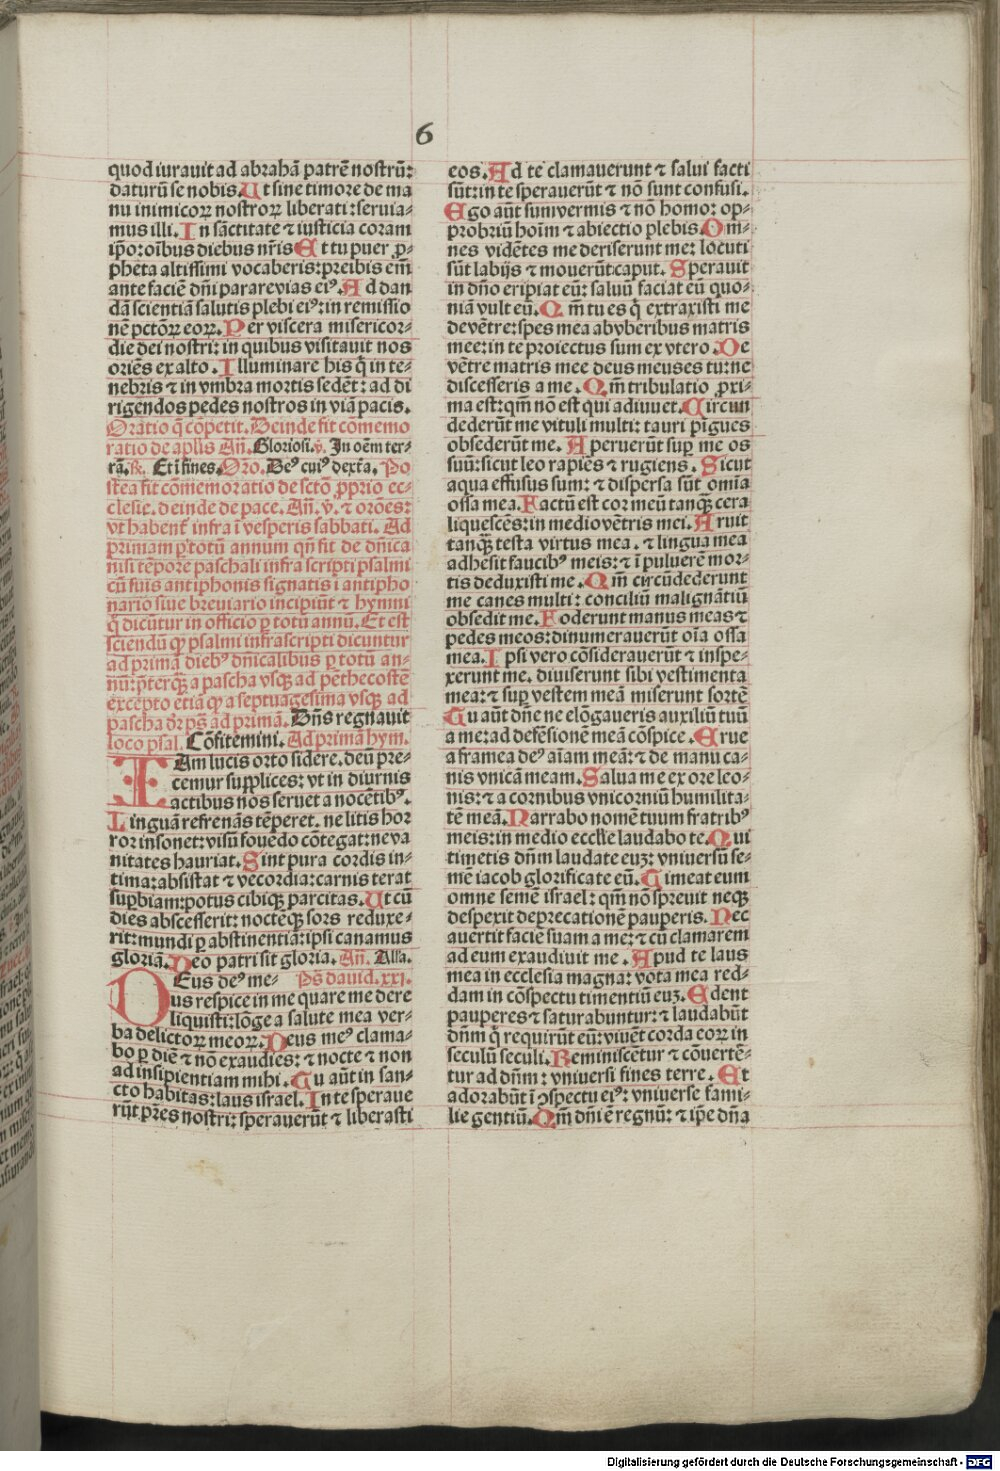 6
quod iurauit ad abrahã patrẽ nostrũ:
daturũ se nobis. Ut sine timore de ma
nu inimicoꝝ nostroꝝ liberati: seruia-
mus illi. In sãctitate ⁊ iusticia coram
ip̃o: oĩbus diebus nr̃is Et tu puer ꝓ-
pheta altissimi vocaberis: preibis em̃
ante faciẽ dñi parare vias eiꝰ. Ad dan
dã scientiã salutis plebi eiꝰ: in remissio
nẽ pctõꝝ eoꝝ. Per viscera misericor-
die dei nostri: in quibus visitauit nos
oriẽs ex alto. Illuminare his q̃ in te-
nebris ⁊ in vmbra mortis sedẽt: ad di
rigendos pedes nostros in viã pacis.
Oratio q̃ cõpetit. Deinde fit cõmemo
ratio de apl̃is Añ. Gloriosi. ꝟ. In oẽm ter-
rã. ℟. Et ĩ fines. Oro. Deꝰ cuiꝰ dext̃a. Po
stea fit cõmemoratio de sctõ ꝓprio ec-
clesie. deinde de pace. Añ. ꝟ. ⁊ orões:
vt habent̃ infra ĩ vesperis sabbati. Ad
primam ꝑ totũ annum qñ fit de dñica
nisi tẽpore paschali infra scripti psalmi
cũ suis antiphonis signatis ĩ antipho
nario siue breuiario incipiũt ⁊ hymni
q̃ dicũtur in officio ꝑ totũ annũ. Et est
sciendũ ꝙ psalmi infrascripti dicuntur
ad primã diebꝰ dñicalibus ꝑ totũ an-
nũ: p̃terq̃ꝫ a pascha vsqꝫ ad pẽthecostẽ
excepto etiã ꝙ a septuagesima vsqꝫ ad
pascha dr̃ ps̃ ad primã. Dñs regnauit
loco psal. Cõfitemini. Ad primã hym.
IAm lucis orto sidere. deũ pre-
cemur supplices: vt in diurnis
actibus nos seruet a nocẽtibꝰ.
Linguã refrenãs tẽperet. ne litis hor
ror insonet: visũ fouẽdo cõtegat: ne va
nitates hauriat. Sint pura cordis in-
tima: absistat ⁊ vecordia: carnis terat
suꝑbiam: potus cibiqꝫ parcitas. Ut cũ
dies abscesserit: nocteqꝫ sors reduxe-
rit: mundi ꝑ abstinentiã: ipsi canamus
gloriã. Deo patri sit gloria. Añ. Alla.
DEus deꝰ me- Ps̃ dauid. xxi.
us respice in me quare me dere
liquisti: lõge a salute mea ver-
ba delictoꝝ meoꝝ. Deus meꝰ clama-
bo ꝑ diẽ ⁊ nõ exaudies: ⁊ nocte ⁊ non
ad insipientiam mihi. Tu aũt in san-
cto habitas: laus israel. In te speraue
rũt pr̃es nostri: sperauerũt ⁊ liberasti
eos. Ad te clamauerunt ⁊ salui facti
sũt: in te sperauerũt ⁊ nõ sunt confusi.
Ego aũt sum vermis ⁊ nõ homo: op-
probriũ hoĩm ⁊ abiectio plebis. Om-
nes vidẽtes me deriserunt me: locuti
sũt labijs ⁊ mouerũt caput. Sperauit
in dño eripiat eũ: saluũ faciat eũ quo-
niã vult eũ. Qm̃ tu es q̃ extraxisti me
de vẽtre: spes mea ab vberibus matris
mee: in te proiectus sum ex vtero. De
vẽtre matris mee deus meus es tu: ne
discesseris a me. Qm̃ tribulatio ꝓxi-
ma est: qm̃ nõ est qui adiuuet. Circun
dederũt me vituli multi: tauri pĩgues
obsederũt me. Aperuerũt suꝑ me os
suũ: sicut leo rapiẽs ⁊ rugiens. Sicut
aqua effusus sum: ⁊ dispersa sũt omĩa
ossa mea. Factũ est cor meũ tanqꝫ cera
liquescẽs: in medio vẽtris mei. Aruit
tanqꝫ testa virtus mea. ⁊ lingua mea
adhesit faucibꝰ meis: ⁊ ĩ puluerẽ mor-
tis deduxisti me. Qm̃ circũdederunt
me canes multi: conciliũ malignãtiũ
obsedit me. Foderunt manus meas ⁊
pedes meos: dinumerauerũt oĩa ossa
mea. Ipsi vero cõsiderauerũt ⁊ inspe-
xerunt me. diuiserunt sibi vestimenta
mea: ⁊ suꝑ vestem meã miserunt sortẽ
Tu aũt dñe ne elõgaueris auxiliũ tuũ
a me: ad defẽsionẽ meã cõspice. Erue
a framea deꝰ aĩam meã: ⁊ de manu ca-
nis vnicã meam. Salua me ex ore leo-
nis: ⁊ a cornibus vnicorniũ humilita-
tẽ meã. Narrabo nomẽ tuum fratribꝰ
meis: in medio eccl̃ie laudabo te. Qui
timetis dñm laudate euꝫ: vniuersũ se-
mẽ iacob glorificate eũ. Timeat eum
omne semẽ israel: qm̃ nõ spreuit neqꝫ
despexit deprecationẽ pauperis. Nec
auertit faciẽ suam a me: ⁊ cũ clamarem
ad eum exaudiuit me. Apud te laus
mea in ecclesia magna: vota mea red-
dam in cõspectu timentiũ euꝫ. Edent
pauperes ⁊ saturabuntur: ⁊ laudabũt
dñm q̃ requirũt eũ: viuẽt corda coꝝ in
seculũ seculi. Reminiscẽtur ⁊ cõuertẽ-
tur ad dñm: vniuersi fines terre. Et
adorabũt ĩ ꝯspectu eiꝰ: vniuerse fami-
lie gentiũ. Qm̃ dñi ẽ regnũ: ⁊ ip̃e dña
Digitalisierung gefördert durch die Deutsche Forschungsgemeinschaft - DFG